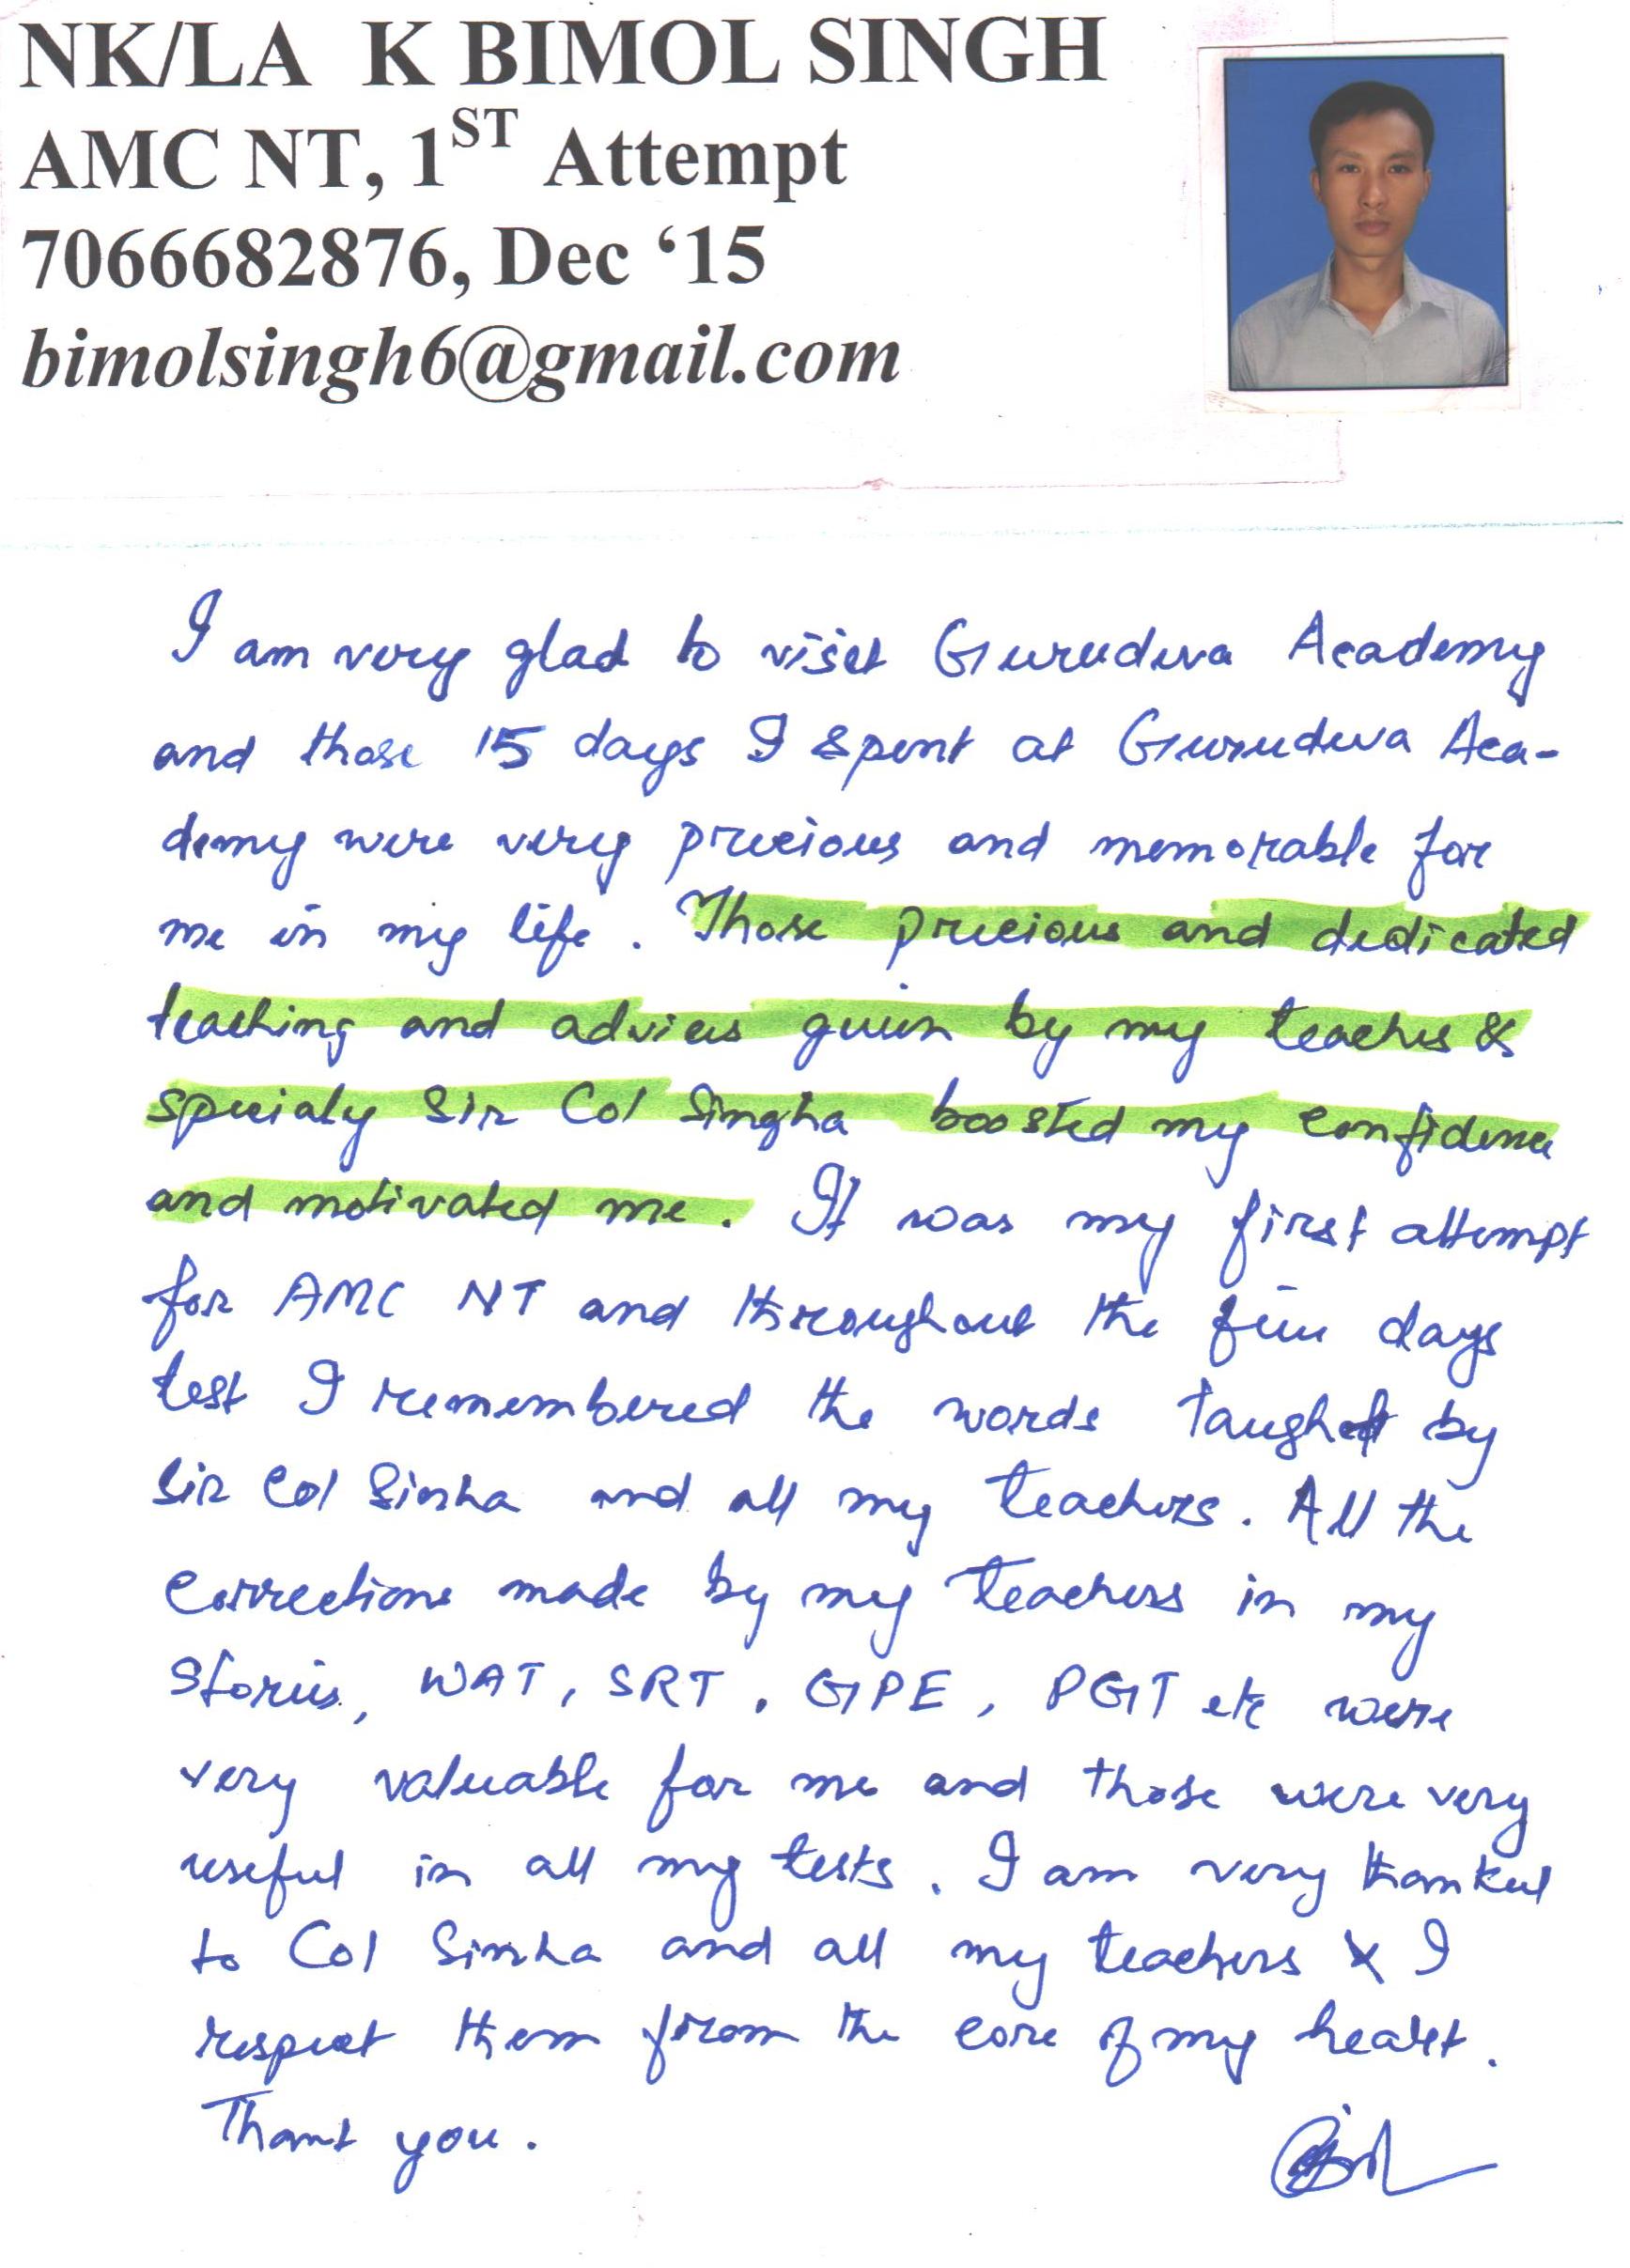 NK/LA K BIMOL SINGH
AMC NT, 1ST Attempt
7066682876, Dec ‘15
bimolsingh6@gmail.com
I am very glad to visit Gurudeva Academy
and those 15 days I spent at Gurudeva Aca-
demy were very precious and memorable for
me in my life. Those precious and dedicated
teaching and advices given by my teachers &
specialy Sir Col Singha boosted my confidence
and motivated me. It was my first attempt
for AMC NT and throughout the five days
test I remembered the words taught by
Sir Col Sinha and all my teachers. All the
corrections made by my teachers in my
stories, WAT, SRT, GPE, PGT etc were
very valuable for me and those were very
useful in all my tests. I am very thankul
to Col Sinha and all my teachers & I
respect them from the core of my heart.
Thank you.